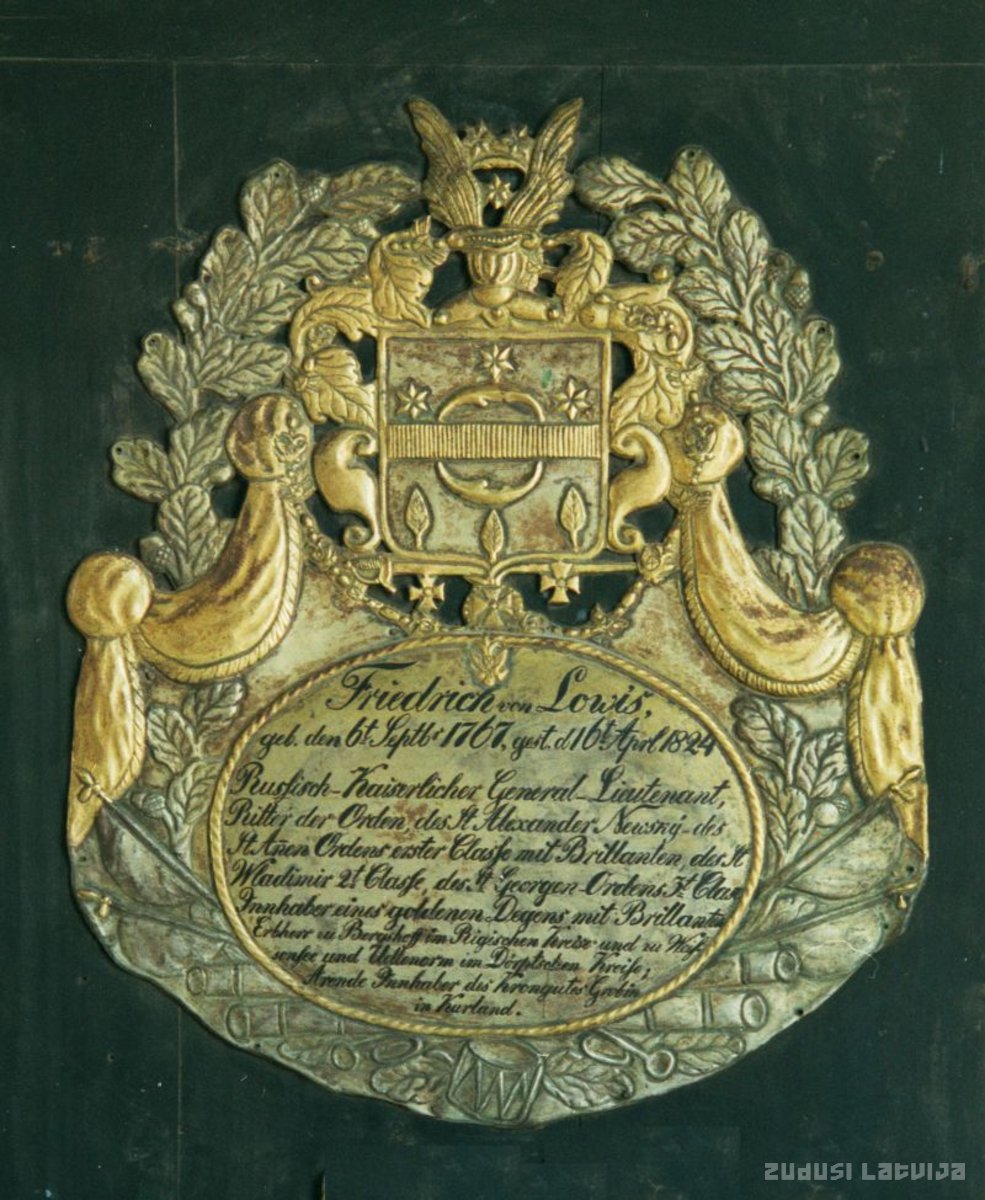 Friedrich von Lowis,
geb. den 6t. Septbr 1767, gest. d 16t. Aprl 1824
Russisch-Kaiserlicher General-Lieutenant,
Ritter der Orden, des St Alexander Newsky- des
St Añen Ordens erster Classe mit Brillanten, des St
Wladimir 2t. Classe, des St Georgen-Ordens 3t. Class
Innhaber eines goldenen Degens mit Brillanten
Erbherr zu Bergshoff im Rigischen Kreise und zu Wais
sensee und Uellenorm im Dörptschen Kreise;
Arende Innhaber des Krongutes Grobin
in Kurland.
ZUDUSI LATVIJA